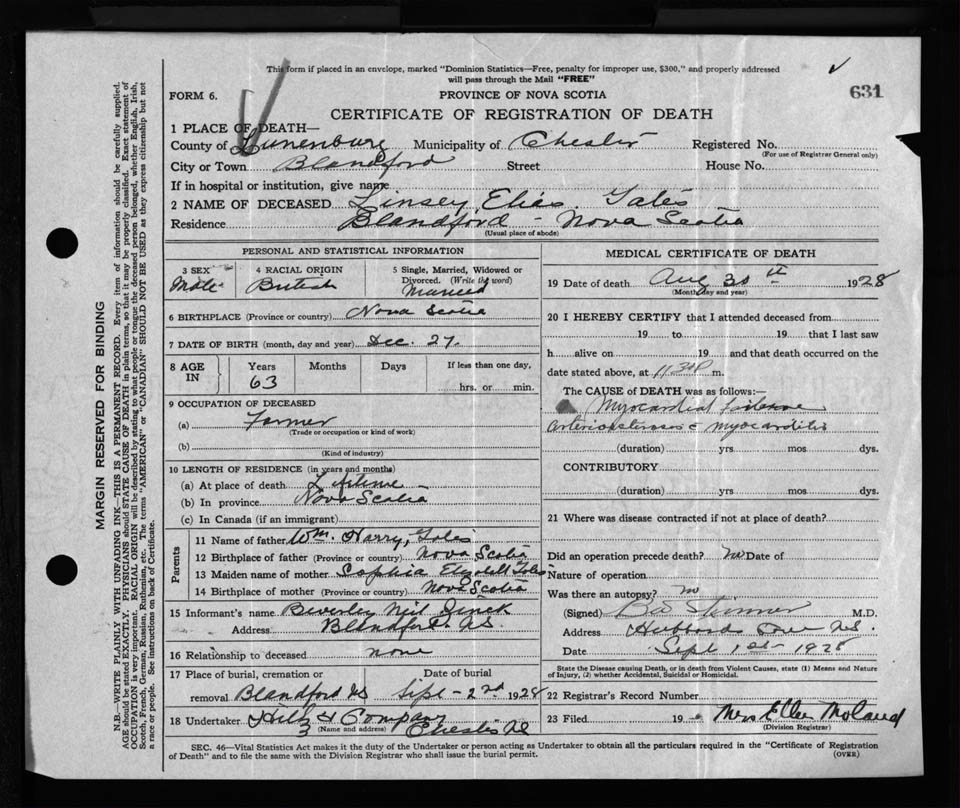 This form if placed in an envelope, marked "Dominion Statistics—Free, penalty for improper use, $300," and properly addressed
will pass through the Mail "FREE"
631
FORM 6.
PROVINCE OF NOVA SCOTIA
CERTIFICATE OF REGISTRATION OF DEATH
1 PLACE OF DEATH—
County of Lunenburg Municipality of Chester Registered No.
(For use of Registrar General only)
City or Town Blandford Street House No.
If in hospital or institution, give name
2 NAME OF DECEASED Linsey Elias
Residence Blandford - Nova Scotia
(Usual place of abode)
PERSONAL AND STATISTICAL INFORMATION
3 SEX 4 RACIAL ORIGIN 5 Single, Married, Widowed or
Divorced. (Write the word)
Male British Married
6 BIRTHPLACE (Province or country) Nova Scotia
7 DATE OF BIRTH (month, day and year) Dec. 27.
8 AGE IN Years Months Days If less than one day,
63 hrs. or min.
9 OCCUPATION OF DECEASED
(a) Farmer
(Trade or occupation or kind of work)
(b)
(Kind of industry)
10 LENGTH OF RESIDENCE (in years and months)
(a) At place of death Lifetime
(b) In province Nova Scotia
(c) In Canada (if an immigrant)
Parents
11 Name of father Wm. Harry
12 Birthplace of father (Province or country) Nova Scotia
13 Maiden name of mother Sophia
14 Birthplace of mother (Province or country) Nova Scotia
15 Informant's name Beverley Neil
Address Blandford. N.S.
16 Relationship to deceased none
17 Place of burial, cremation or
removal Blandford NS Sept - 2nd 1928
18 Undertaker Hiltz & Company
(Name and address) Chester NS
MEDICAL CERTIFICATE OF DEATH
19 Date of death Aug 30th 1928
(Month day and year)
20 I HEREBY CERTIFY that I attended deceased from
19 to 19 that I last saw
h alive on 19 and that death occurred on the
date stated above, at m.
The CAUSE of DEATH was as follows:—
Myocardial
myocarditis
(duration) yrs. mos. dys.
CONTRIBUTORY
(duration) yrs. mos. dys.
21 Where was disease contracted if not at place of death?
Did an operation precede death? no Date of
Nature of operation
Was there an autopsy? no
(Signed) M.D.
Address Hubbards N.S.
Date Sept 1st - 1928
State the Disease causing Death, or in death from Violent Causes, state (1) Means and Nature
of Injury, (2) whether Accidental, Suicidal or Homicidal.
22 Registrar's Record Number
23 Filed 19 Mrs
(Division Registrar)
SEC. 46—Vital Statistics Act makes it the duty of the Undertaker or person acting as Undertaker to obtain all the particulars required in the "Certificate of Registration
of Death" and to file the same with the Division Registrar who shall issue the burial permit. (OVER)
MARGIN RESERVED FOR BINDING
N.B.—WRITE PLAINLY WITH UNFADING INK—THIS IS A PERMANENT RECORD. Every item of information should be carefully supplied.
AGE should be stated EXACTLY. PHYSICIANS should STATE CAUSE OF DEATH in plain terms, so that it may be properly classified. Exact statement of
OCCUPATION is very important. RACIAL ORIGIN will be described by stating to what people or tongue the deceased person belonged, whether English, Irish,
Scotch, French, German, Russian, Ruthenian, etc. The terms "AMERICAN" or "CANADIAN" SHOULD NOT BE USED as they express citizenship but not
a race or people. See instructions on back of Certificate.